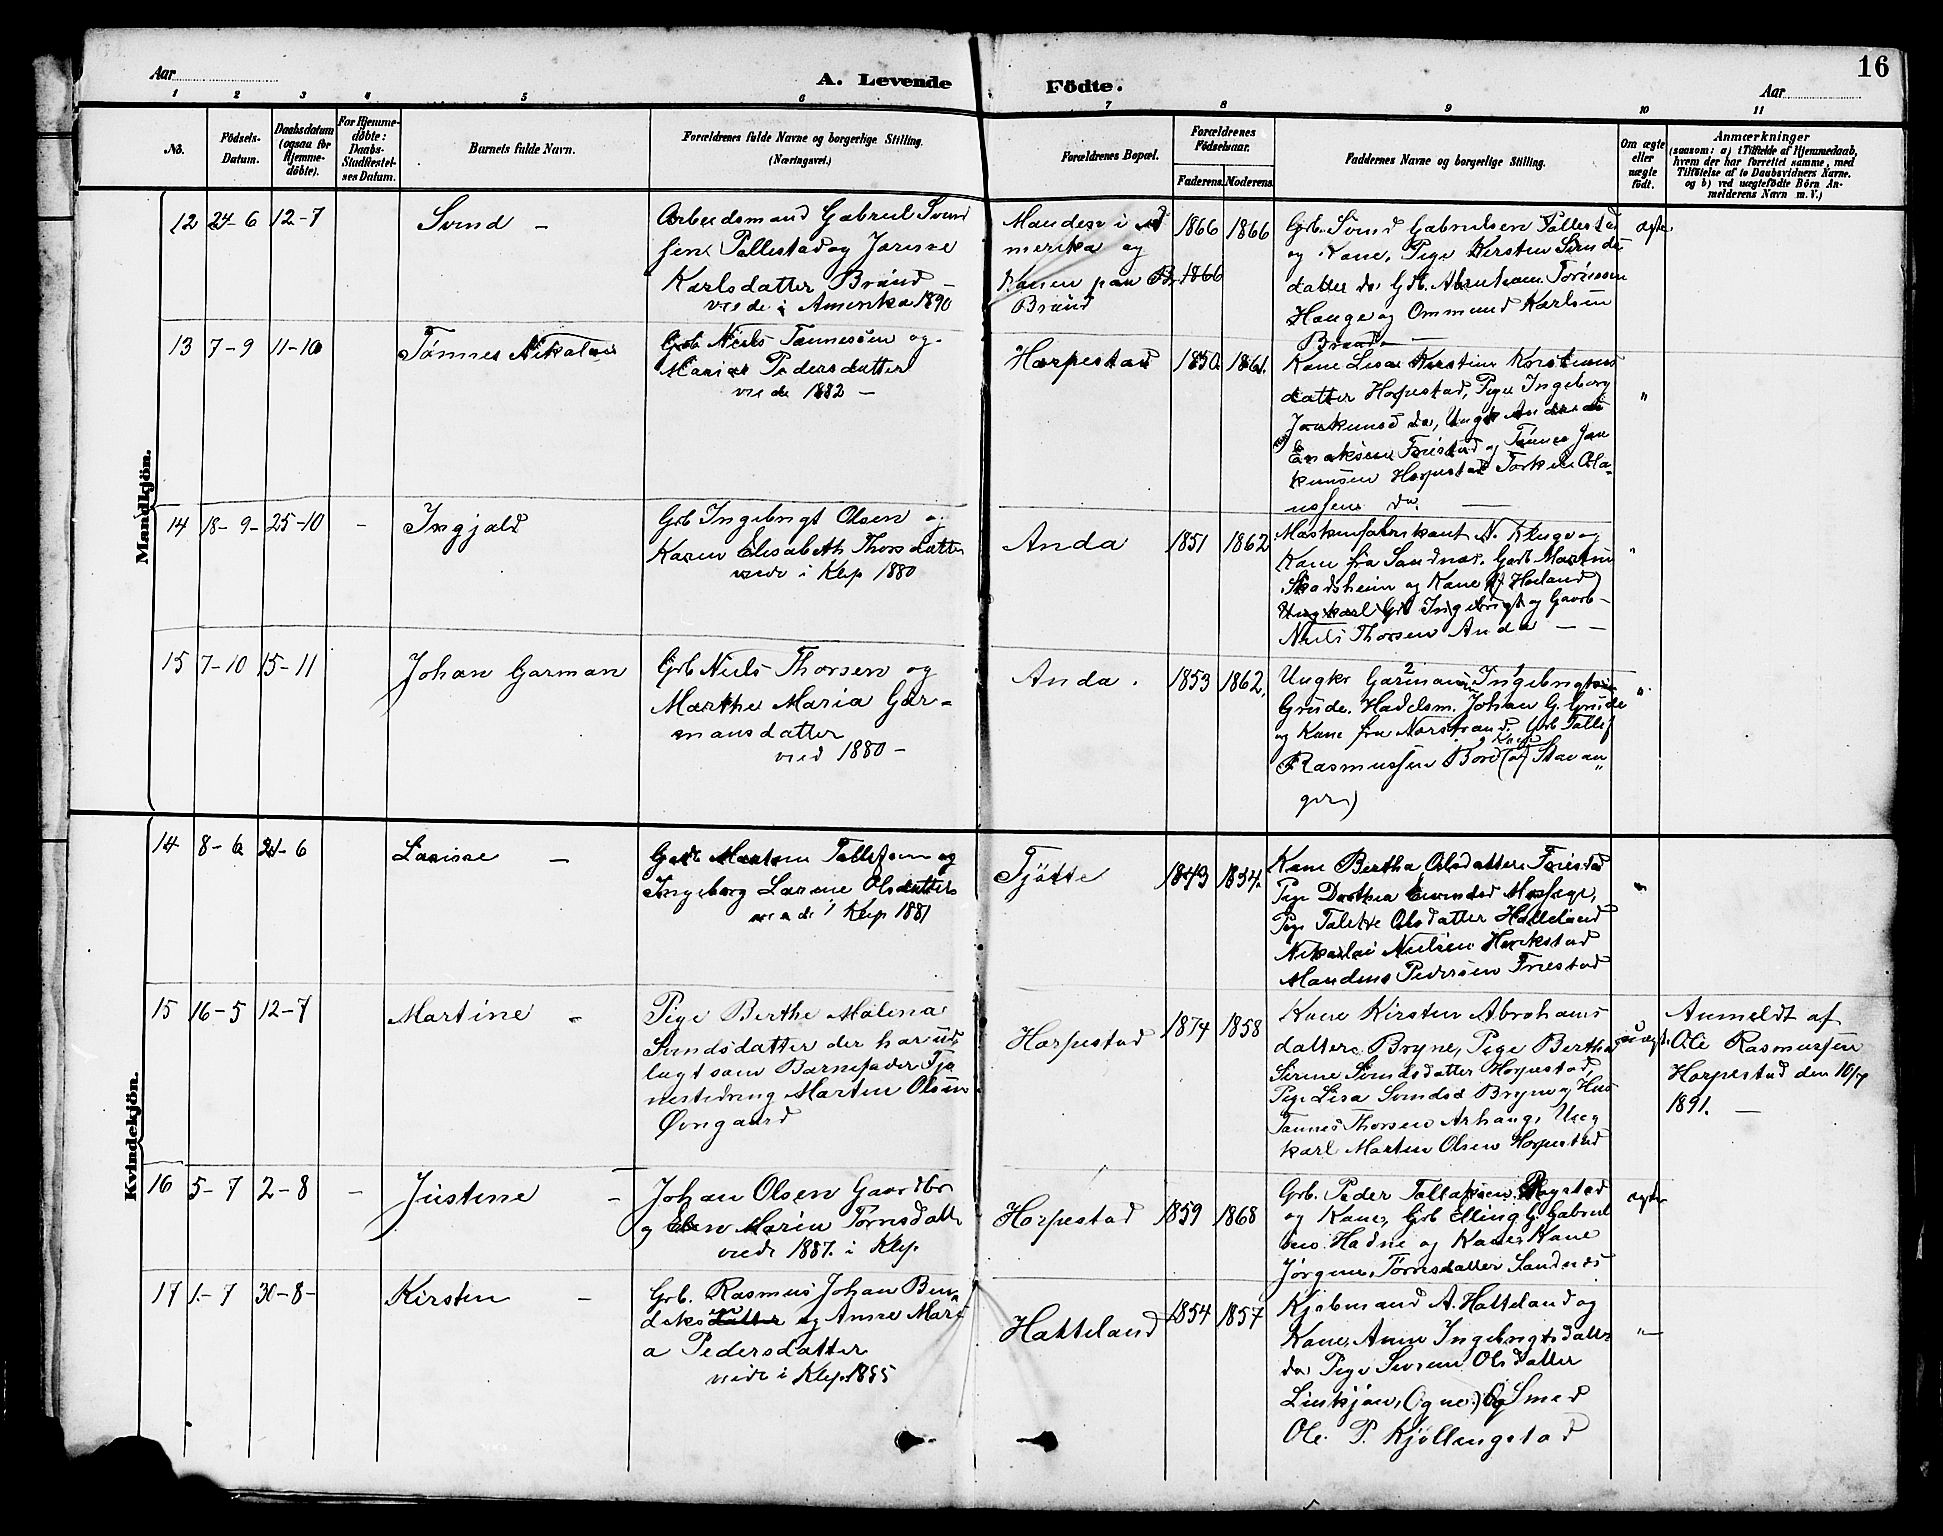 16
Aar
A. Levende
Födte.
Aar
1 2 3 4 5 6 7 8 9 10 11
No.
Födsels-
Datum.
Daabsdatum
(ogsaa for
Hjemme-
döbte).
For Hjemme-
döbte:
Daabs-
Stadfæstel-
ses Datum.
Barnets fulde Navn.
Forældrenes fulde Navne og borgerlige Stilling.
(Næringsvei.)
Forældrenes Bopæl.
Forældrenes
Födselsaar.
Faderens. Moderens.
Faddernes Navne og borgerlige Stilling.
Om ægte
eller
uægte
födt.
Anmærkninger
(saasom: a) i Tilfælde af Hjemmedaab,
hvem der har forrettet samme, med
Tilföielse af to Daabsvidners Navne.
og b) ved uægtefödte Börn An-
melderens Navn m. V.)
Mandkjön.
12 24-6 12-7
Svend -
Arbeidsmand Gabriel Svend
sen Tallestad og
Karlsdatter Braud -
viede i Amerika 1890
Manden i A
merika og
Konen paa
Braud
1866 1866
1866
Grb. Svend Gabrielsen Tallestad
og Kone, Pige Kirsten Svends
datter do. Grb. Abraham
Hauge og Ommund Karlsen
Braud -
ægte
13 7-9 11-10
Tönnes Nikolai
Grb Niels Tönnesen og
Maria Pedersdatter
viede 1882 -
Horpestad
1850 1861.
Kone Lisa Kirstine
datter Horpestad, Pige Ingeborg
do, Ungk Andreas
Friestad og Tönnes
Horpestad Torkel Ola-
ussen do. -
"
14 18-9- 25-10 -
Ingjald
Grb Ingebrigt Olsen og
Karen Elisabeth Thorsdatter
viede i Klep 1880
Anda
1851 1862
Maskinfabrikant N. Kluge og
Kone fra Sandnæs. Gardb Martin
Skadsheim og Kone
Ungkarl Grb Ingebrigt og Gaardb-
Niels Thorsen Anda - -
"
15 7-10 15-11
Johan Garman
Grb Niels Thorsen og
Marthe Maria Gar-
mansdatter
vied 1880 -
Anda.
1853 1862.
Ungkr Garman Ingebrigtsen
Grude. Handelsm. Johan G. Grude
og Kone fra Norstrand. Grb Tallef
Rasmussen Bore (af Stavan
ger)
"
Kvindekjön.
14 8-6 21-6
Lovise -
Gardb Tallefsen og
Ingeborg Larine Olsdatter
viede i Klep 1881
Tjötte
1843 1854.
Kone Bertha Olsdatter Friestad
Pige Dorthea
Pige Talete Olsdatter Hatteland
Nikolai Nielsen
Pedersen Friestad
"
15 16-5 12-7
Martine -
Pige Berthe Malena
Svendsdatter der har ud
lagt som Barnefader Tje
nestedreng Martin Olsen
Øvngaard
Horpestad
1874 1858
Kone Kirsten Abrahams
datter Bryne, Pige Bertha
Serine Svendsdatter Horpestad,
Pige Lisa Svendsd Bryne og
Tønnes Thorsen Aarhaug, Ung
karl Martin Olsen Horpestad
uægt.
Anmeldt af
Ole Rasmussen
Horpestad den 10/7
1891. -
16 5-7 2-8 -
Justine -
Johan Olsen Gaardbr
og Elen Marie
viede 1887. i Klep.
Horpestad
1859 1868
Grb. Peder
og Kone, Grb Elling G. Gabriel
sen. Hadne og Kone, Kone
Jørgine Sandnæs
ægte
17 1.-7 30-8-
Kirsten -
Grb. Rasmus Johan Ben
diks og Anne Mari
a Pedersdatter
viede i Klep 1885
Hatteland
1854 1857
Kjøbmand A. Hatteland og
Kone, Anne Ingebrigtsdatter
do. Pige Olsdatter
(Ogne.) Og Smed
Ole P. Kjøllingstad
"